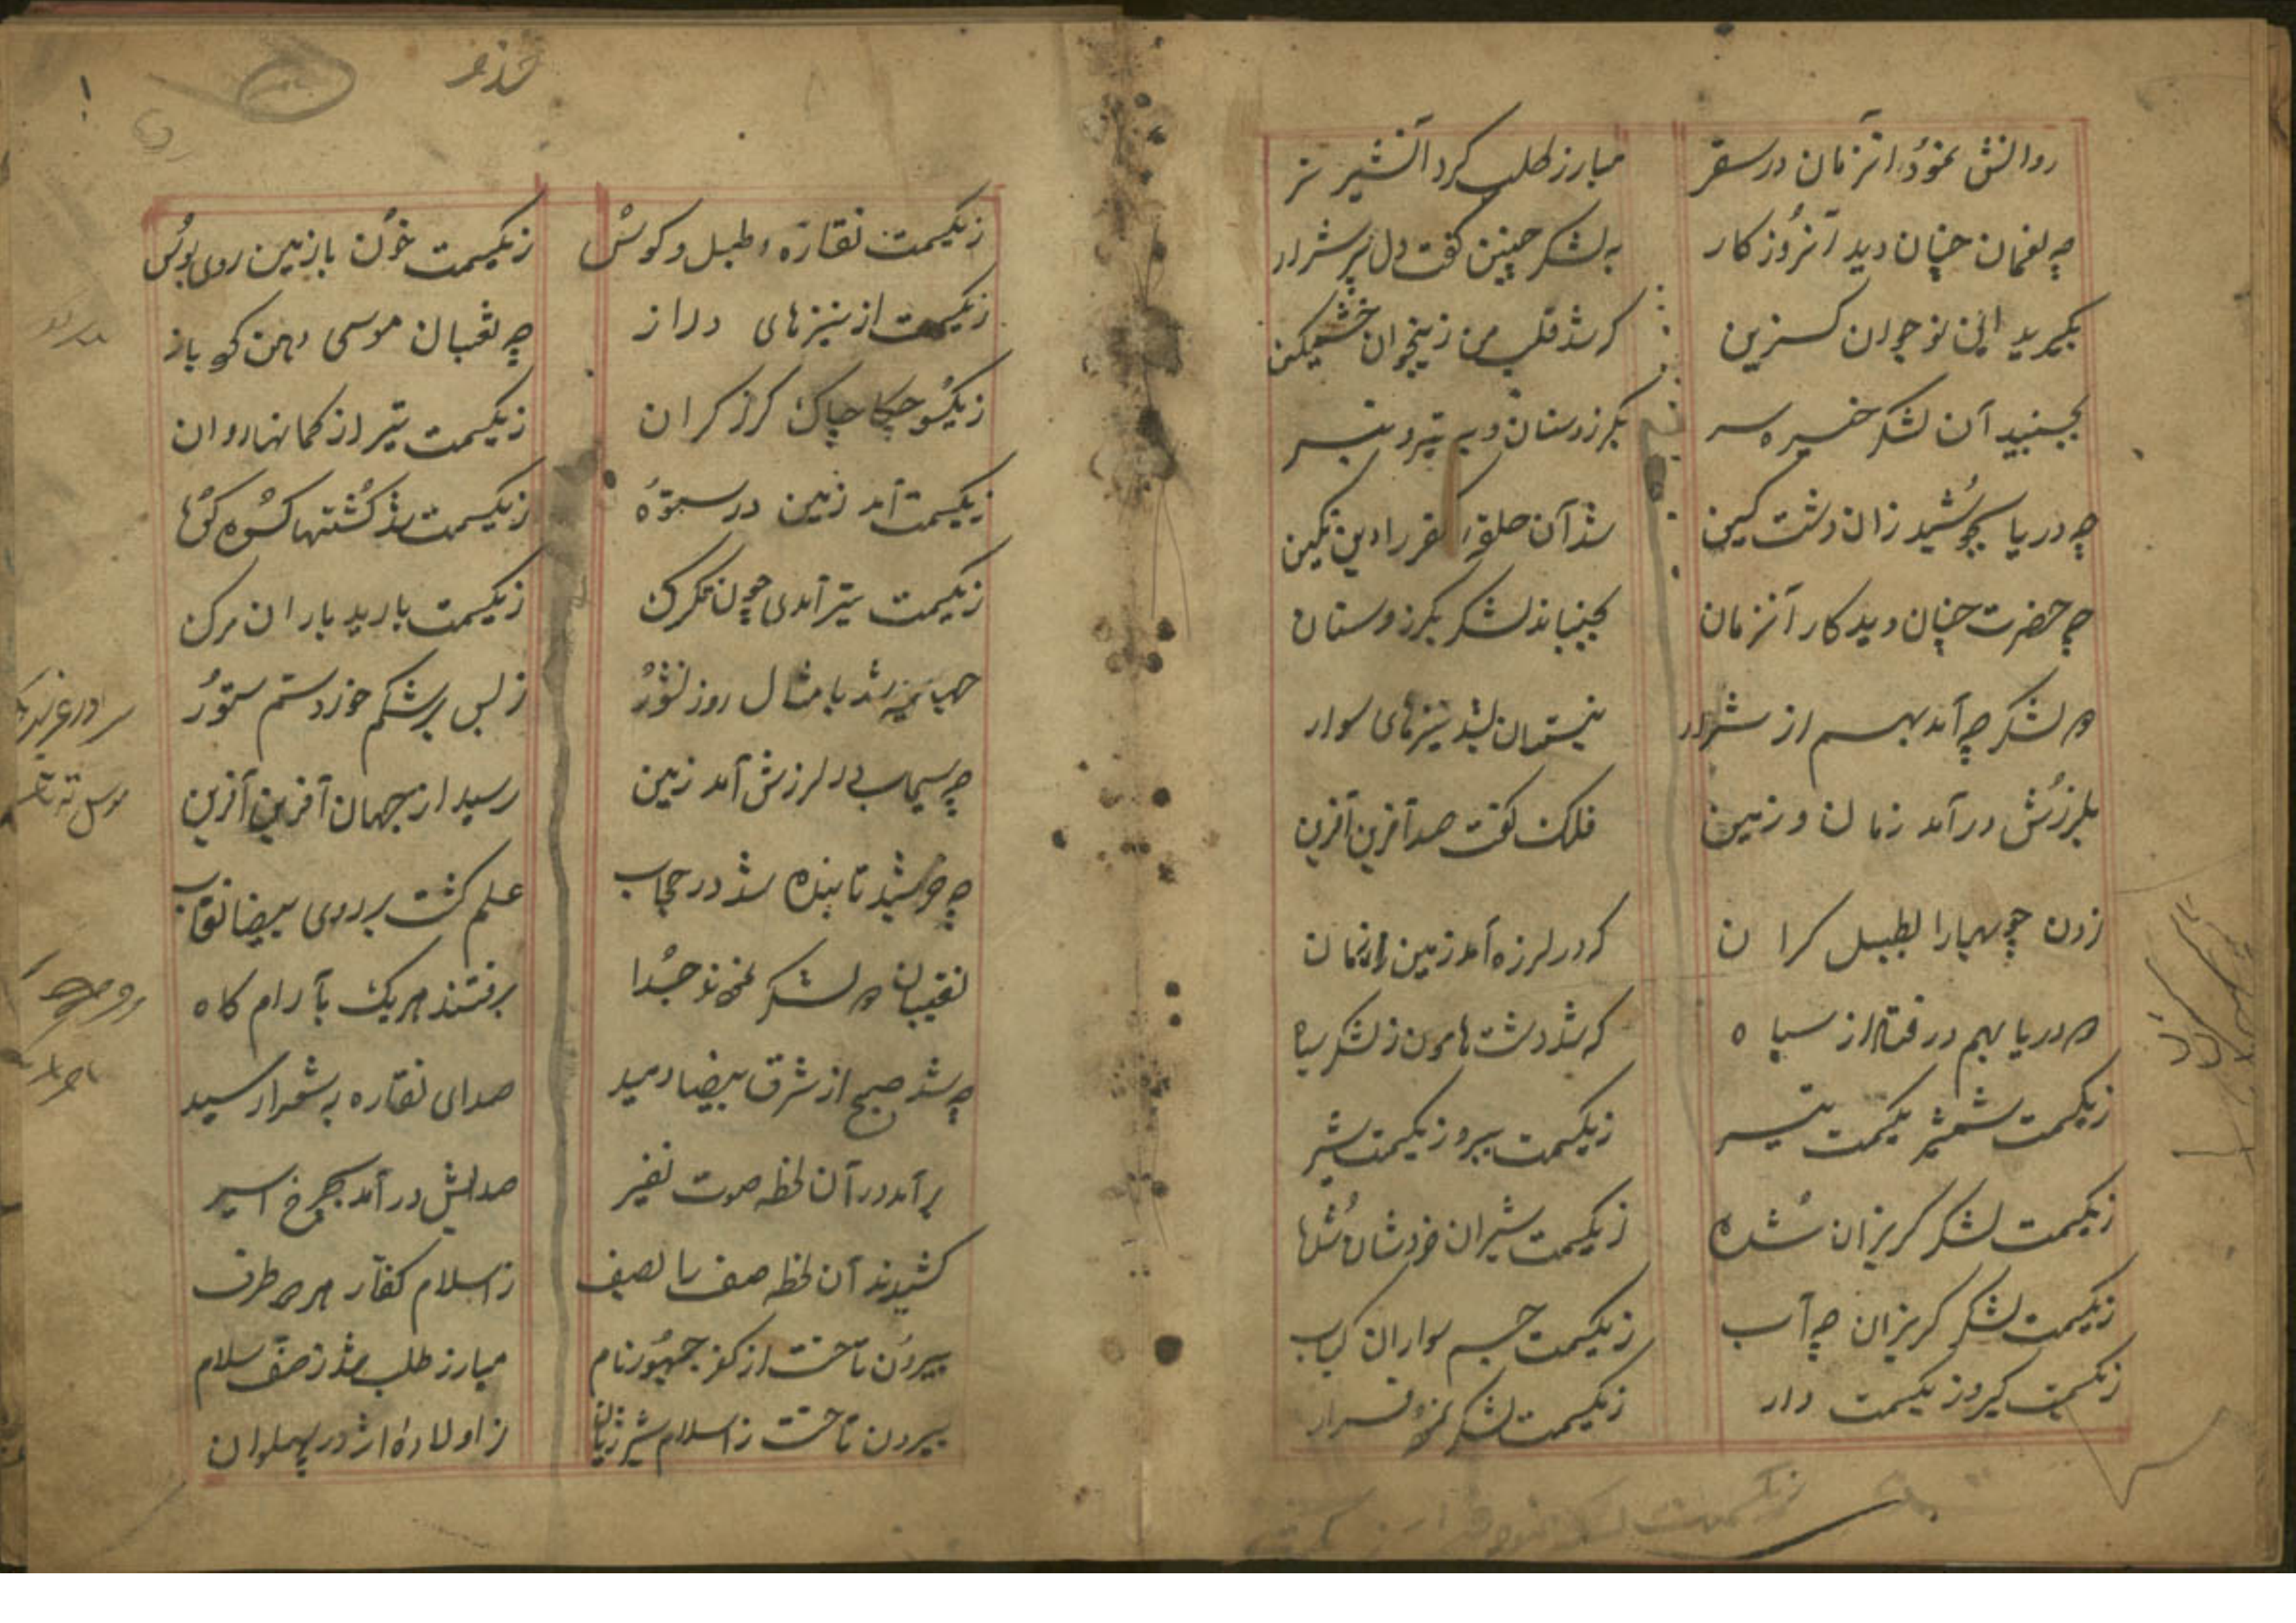 روانش نمود آنزمان در سقر
مبارز طلب کرد آنشیر نر
چه لغمان چنان دید آنروزکار
به لشکر چنین کفت دل پر شرار
بکیرید این نوجوان کزین
که شد قلب من زینجوان خشمکین
بجنبید آن لشکر خیره سر
بکرز و سنان و به تیر و تبر
چه دریا بجوشید زان دشت کین
شد آن حلقه کفر را دین نکین
چه حضرت چنان دید کار آنزمان
بجنباند لشکر بکرز و سنان
دو لشکر چه آمد بهم از شرار
نیستان شد نیزهای سوار
بلرزش در آمد زمان و زمین
فلک کفت صد آفرین آفرین
زدن چوبهارا بطبل کران
که در لرزه آمد زمین و زمان
دو دریا بهم در فتاد از سپاه
که شد دشت هامون ز لشکر سیاه
زیکسمت شمشیر یکسمت تیر
زیکسمت ببر و زیکسمت شیر
زیکسمت لشکر کریزان شده
زیکسمت شیران خروشان شده
زیکسمت لشکر کریزان چه آب
زیکسمت جسم سواران کباب
زیکسمت کیر و زیکسمت دار
زیکسمت لشکر نمود فرار
زیکسمت نقاره و طبل و کوس
زیکسمت خون با زمین روی بوس
زیکسمت از نیزهای دراز
چه ثعبان موسی دهن کرد باز
زیکسو چکاچاک کرز کران
زیکسمت تیر از کمانها روان
زیکسمت آمد زمین در ستوه
زیکسمت شد کشتها کوه کوه
زیکسمت تیر آمدی چون تکرک
زیکسمت بارید باران مرک
جهان تیره شد با مثال روز نشور
ز بس بر شکم خورد سم ستور
چه سیماب در لرزش آمد زمین
رسید از جهان آفرین آفرین
چه خورشید تابنده شد در حجاب
علم کشت بر روی بیضا نقاب
نقیبان دو لشکر نمودند جدا
برفتند هر یک بآرام کاه
چه شد صبح از شرق بیضا دمید
صدای نقاره به شعرا رسید
بر آمد در آن لحظه صوت نفیر
صدایش در آمد بچرخ اسیر
کشیدند آن لحظه صف با لصف
ز اسلام کفار هر دو طرف
بیرون تاخت از کفر جمهور نام
مبارز طلب شد ز صف سلام
بیرون تاخت ز اسلام شیر ژیان
ز اولاده اژدر پهلوان